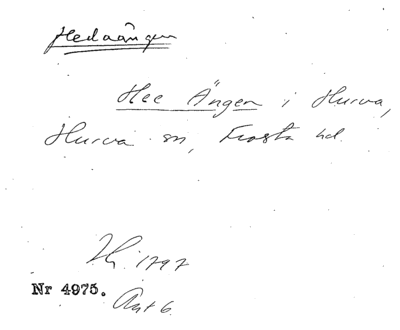 Hedaängen
Hee Ängen i Hurva,
Hurva sn, Frosta hd.
Hy. 1797
Nr 4975.
Akt 6.